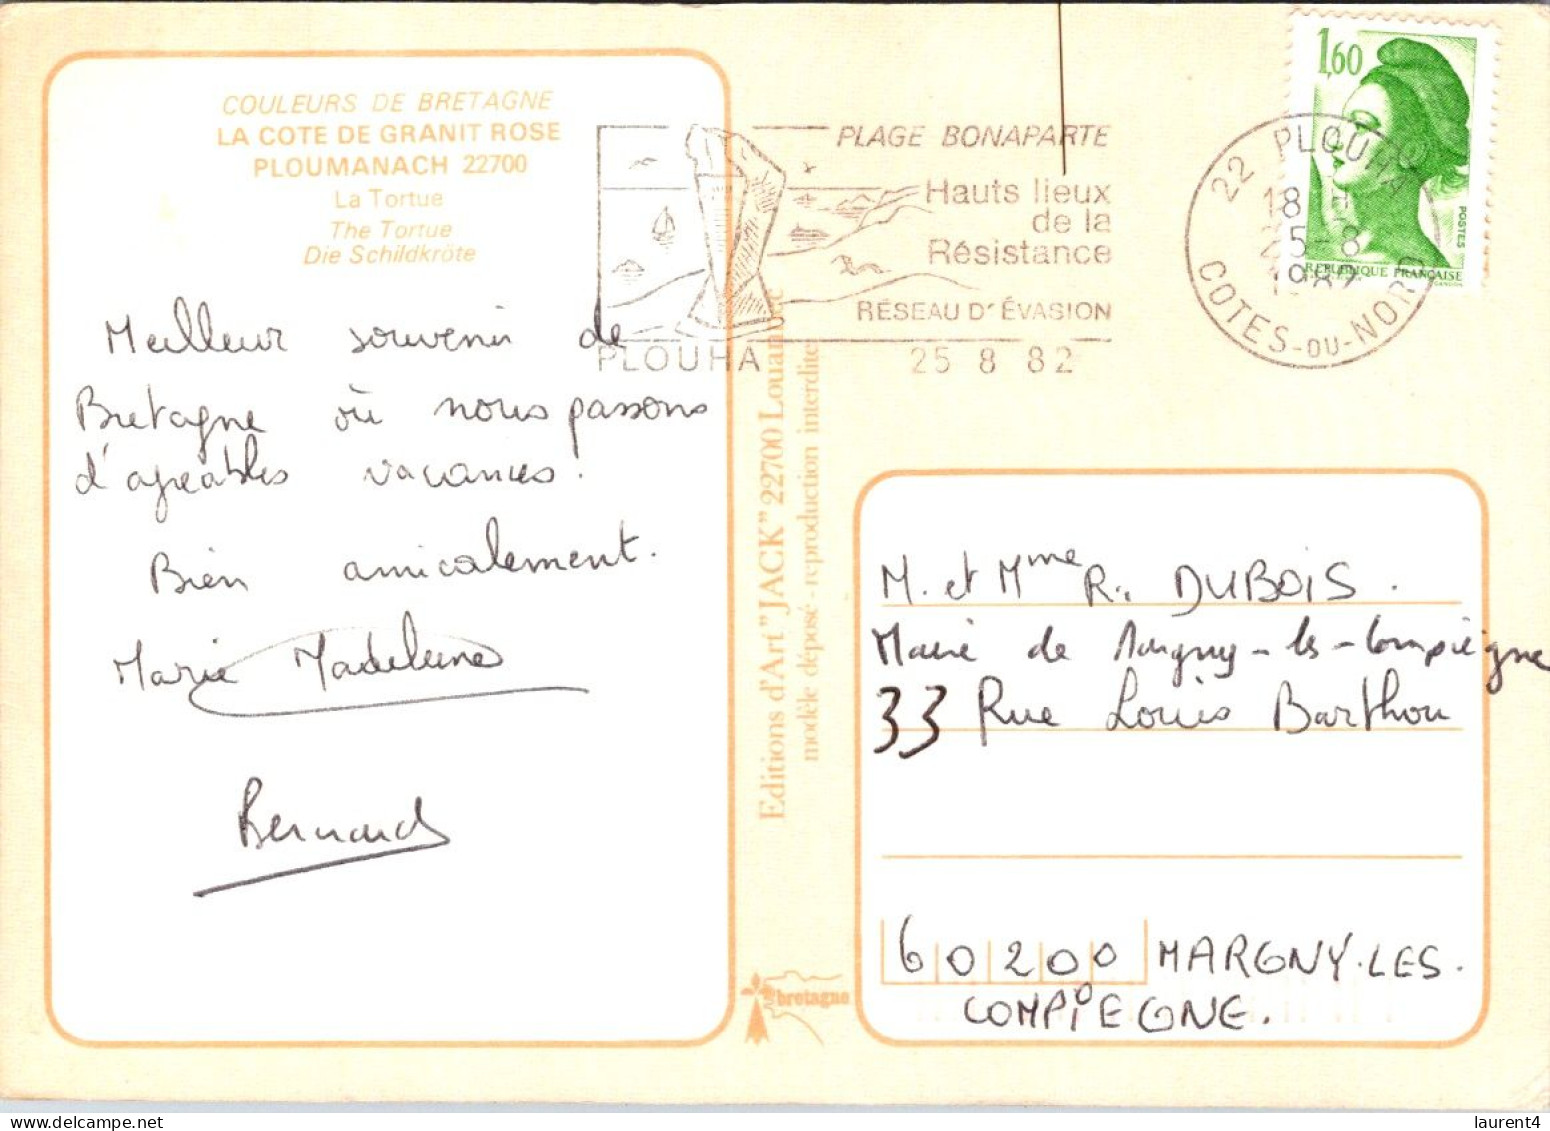 COULEURS DE BRETAGNE
LA COTE DE GRANIT ROSE
PLOUMANACH 22700
La Tortue
The Tortue
Die Schildkröte
Meilleur souvenir de
Bretagne où nous passons
d'agréables vacances!
Bien amicalement.
Marie Madeleine
Bernard
PLAGE BONAPARTE
Hauts lieux
de la
Résistance
RÉSEAU D'ÉVASION
PLOUHA
25 8 82
22 PLOUHA
18 H
25-8
1982
COTES-DU-NORD
1,60
POSTES
REPUBLIQUE FRANÇAISE
GANDON
Editions d'Art "JACK" 22700 Louannec
modèle déposé - reproduction interdite
bretagne
M. et Mme R. DUBOIS.
Mairie de Margny-les-Compiègne
33 Rue Louis Barthou
60200 MARGNY-LES-
COMPIEGNE.
laurent4